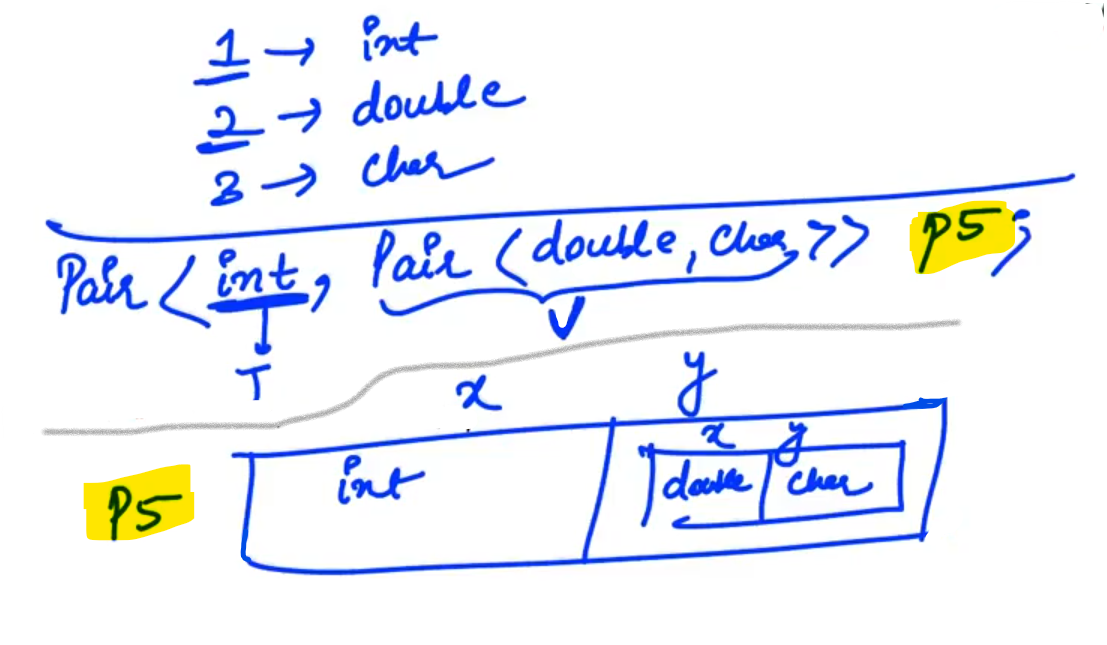 1 → int
2 → double
3 → char
Pair < int, Pair < double, char >> P5 ;
T V
x y
x y
P5 int double char